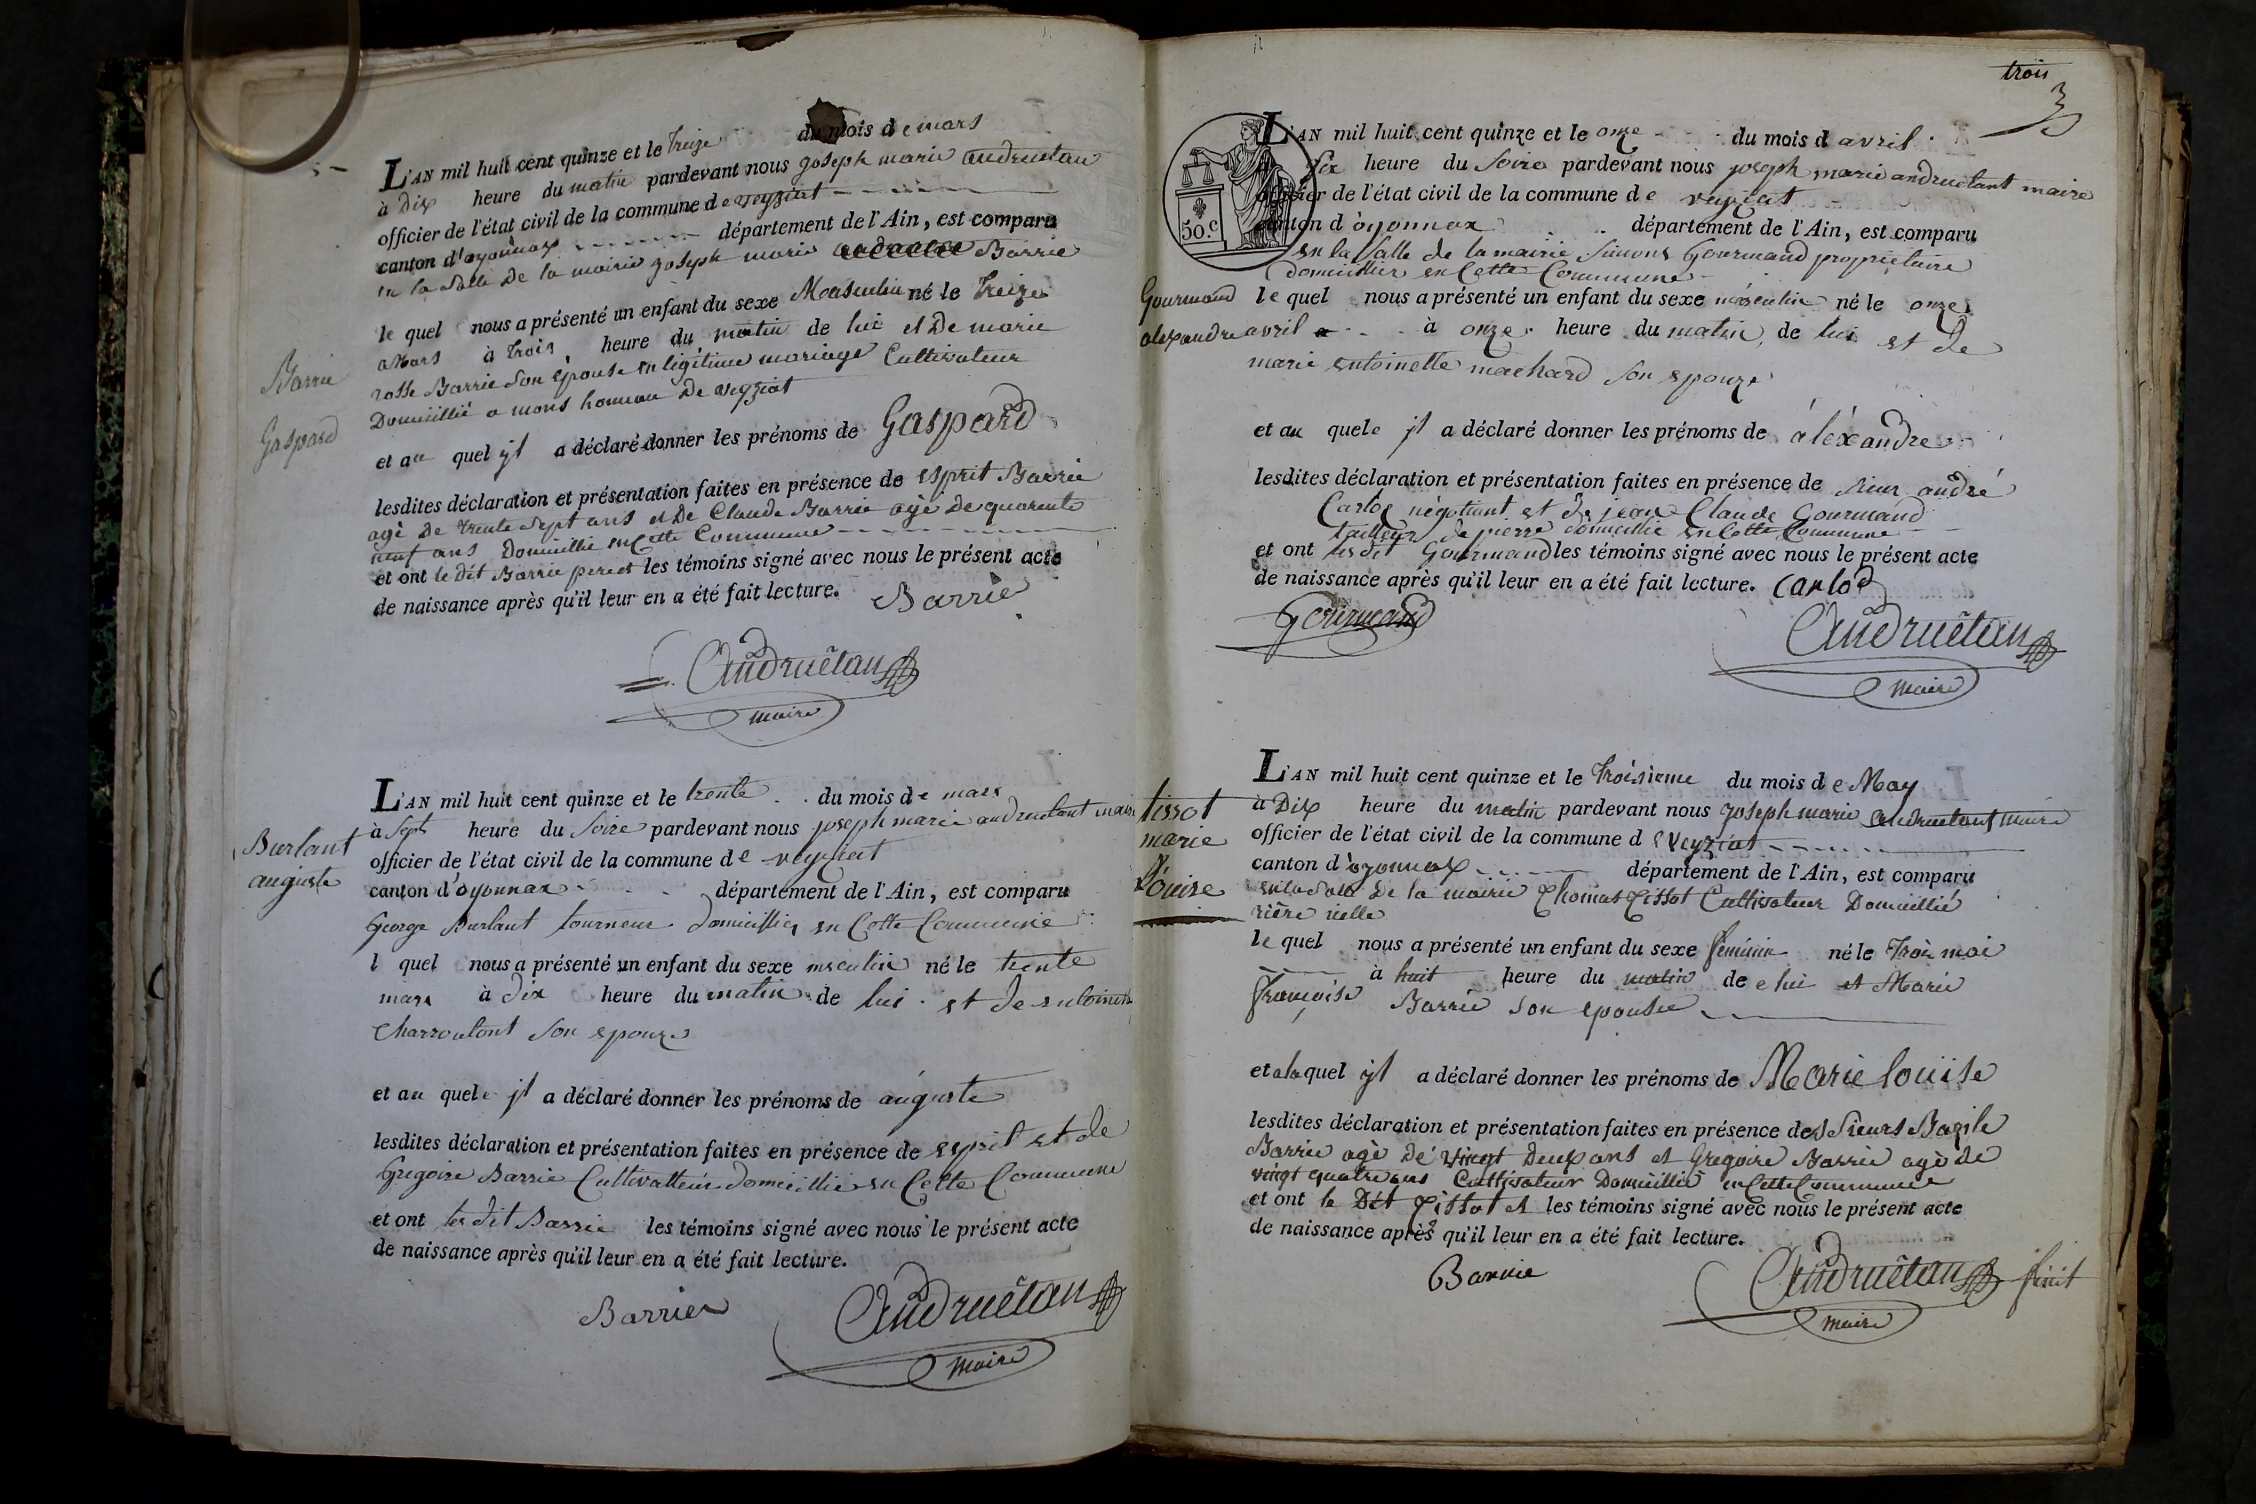 L'AN mil huit cent quinze et le treize du mois de mars
à Dix heure du matin pardevant nous joseph marie andruetan
officier de l'état civil de la commune de veyziat
canton d'oyonnax département de l'Ain, est comparu
en la salle de la mairie joseph marie Barrie
le quel nous a présenté un enfant du sexe Masculin né le treize
Mars à trois heure du matin de lui et De marie
rosse Barrie son epouse en légitime mariage Cultivateur
Domicillié a mons hameau de veyziat
et au quel yl a déclaré donner les prénoms de Gaspard
lesdites déclaration et présentation faites en présence de esprit Barrie
agè de trente sept ans et De Claude Barrie agè de quarente
neuf ans Domicillié en Cette Commune
et ont le dét Barrie pere et les témoins signé avec nous le présent acte
de naissance après qu'il leur en a été fait lecture.
Barrie
Andruêtan
maire
Barrie
Gaspard
L'AN mil huit cent quinze et le trente du mois de mars
à sept heure du soire pardevant nous joseph marie andruetant maire
officier de l'état civil de la commune de veyziat
canton d'oyonnax département de l'Ain, est comparu
George Burlant tourneur domicillier en Cette Commune
l quel nous a présenté un enfant du sexe msculin né le trente
mars à dix heure du matin de lui et de entoinette
Charroutont son epouze
et au quele jl a déclaré donner les prénoms de auguste
lesdites déclaration et présentation faites en présence de esprit et de
Gregoire Barrie Cultivatteur domicillie en Cette Commune
et ont les dit Barrie les témoins signé avec nous le présent acte
de naissance après qu'il leur en a été fait lecture.
Barrier
Andruêtan
maire
Burlant
auguste
trois
3
L'AN mil huit cent quinze et le onze du mois d avril
six heure du soire pardevant nous joseph marie andruetant maire
officier de l'état civil de la commune de veyziat
canton d'oyonnax département de l'Ain, est comparu
50.c
en la salle de la mairie simons Gourmand propriétaire
domicillier en Cette Commune
le quel nous a présenté un enfant du sexe masculin né le onze
avril à onze heure du matin de lui et de
marie entoinette machard son epouze
et au quele jl a déclaré donner les prénoms de aléxandre
lesdites déclaration et présentation faites en présence de sieur andré
Carloz négotiant et de jean Claude Gourmand
tailleur de pierre domicillie en Cette Commune
et ont les dit Gourmand les témoins signé avec nous le présent acte
de naissance après qu'il leur en a été fait lecture. Carloz
Gourmand
Andruêtan
maire
Gourmand
alexandre
L'AN mil huit cent quinze et le troisieme du mois de May
à Dix heure du matin pardevant nous joseph marie andruetant maire
officier de l'état civil de la commune d e veyziat
canton d'oyonnax département de l'Ain, est comparu
en la salle de la mairie Thomas Tissot Cultivateur Domicillié
rière vielle
le quel nous a présenté un enfant du sexe féminin né le trois mai
à huit heure du matin de e lui et Marie
françoise Barrie son epouse
et a la quel yl a déclaré donner les prénoms de Marie louise
lesdites déclaration et présentation faites en présence des sieurs Bazile
Barrie agè de vingt Deux ans et Gregoire Barrie agè de
vingt quatre ans Cultivateur Domicillié en Cette Commune
et ont le Dét Tissot et les témoins signé avec nous le présent acte
de naissance après qu'il leur en a été fait lecture.
Barrie
Andruêtan
maire
finit
tissot
marie
louise